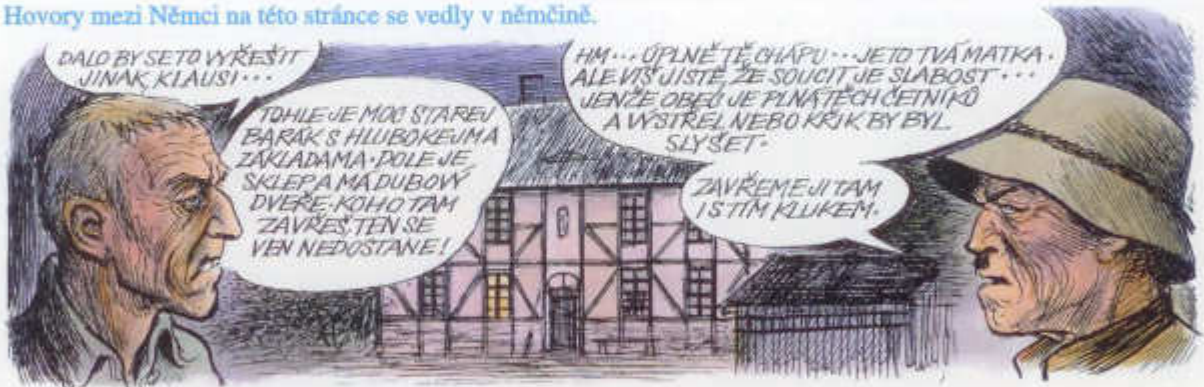 Hovory mezi Němci na této stránce se vedly v němčině.
DALO BY SE TO VYŘEŠIT
JINAK, KLAUSI...
TOHLE JE MOC STAREJ
BARÁK S HLUBOKEJMA
ZÁKLADAMA. DOLE JE
SKLEP A MÁ DUBOVÝ
DVEŘE. KOHO TAM
ZAVŘEŠ, TEN SE
VEN NEDOSTANE!
HM... ÚPLNĚ TĚ CHÁPU... JE TO TVÁ MATKA.
ALE VÍŠ JISTĚ, ŽE SOUCIT JE SLABOST...
JENŽE OBEC JE PLNÁ TĚCH ČETNÍKŮ
A VÝSTŘEL NEBO KŘIK BY BYL
SLYŠET.
ZAVŘEME JI TAM
I S TÍM KLUKEM.